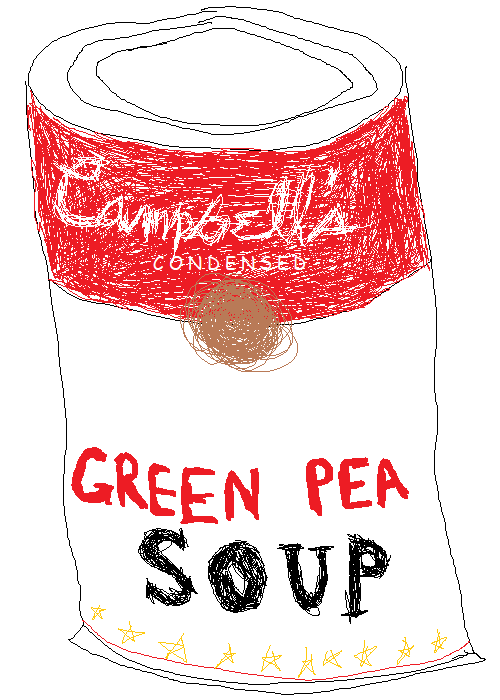 Campbell's
CONDENSED
GREEN PEA
SOUP